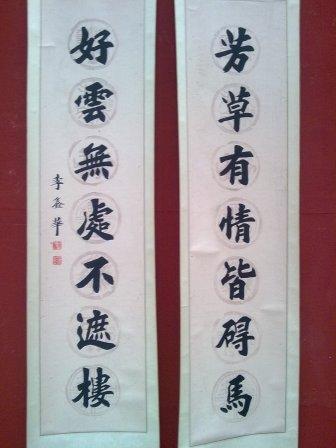 芳草有情皆碍馬
好雲無處不遮樓
李鑫華